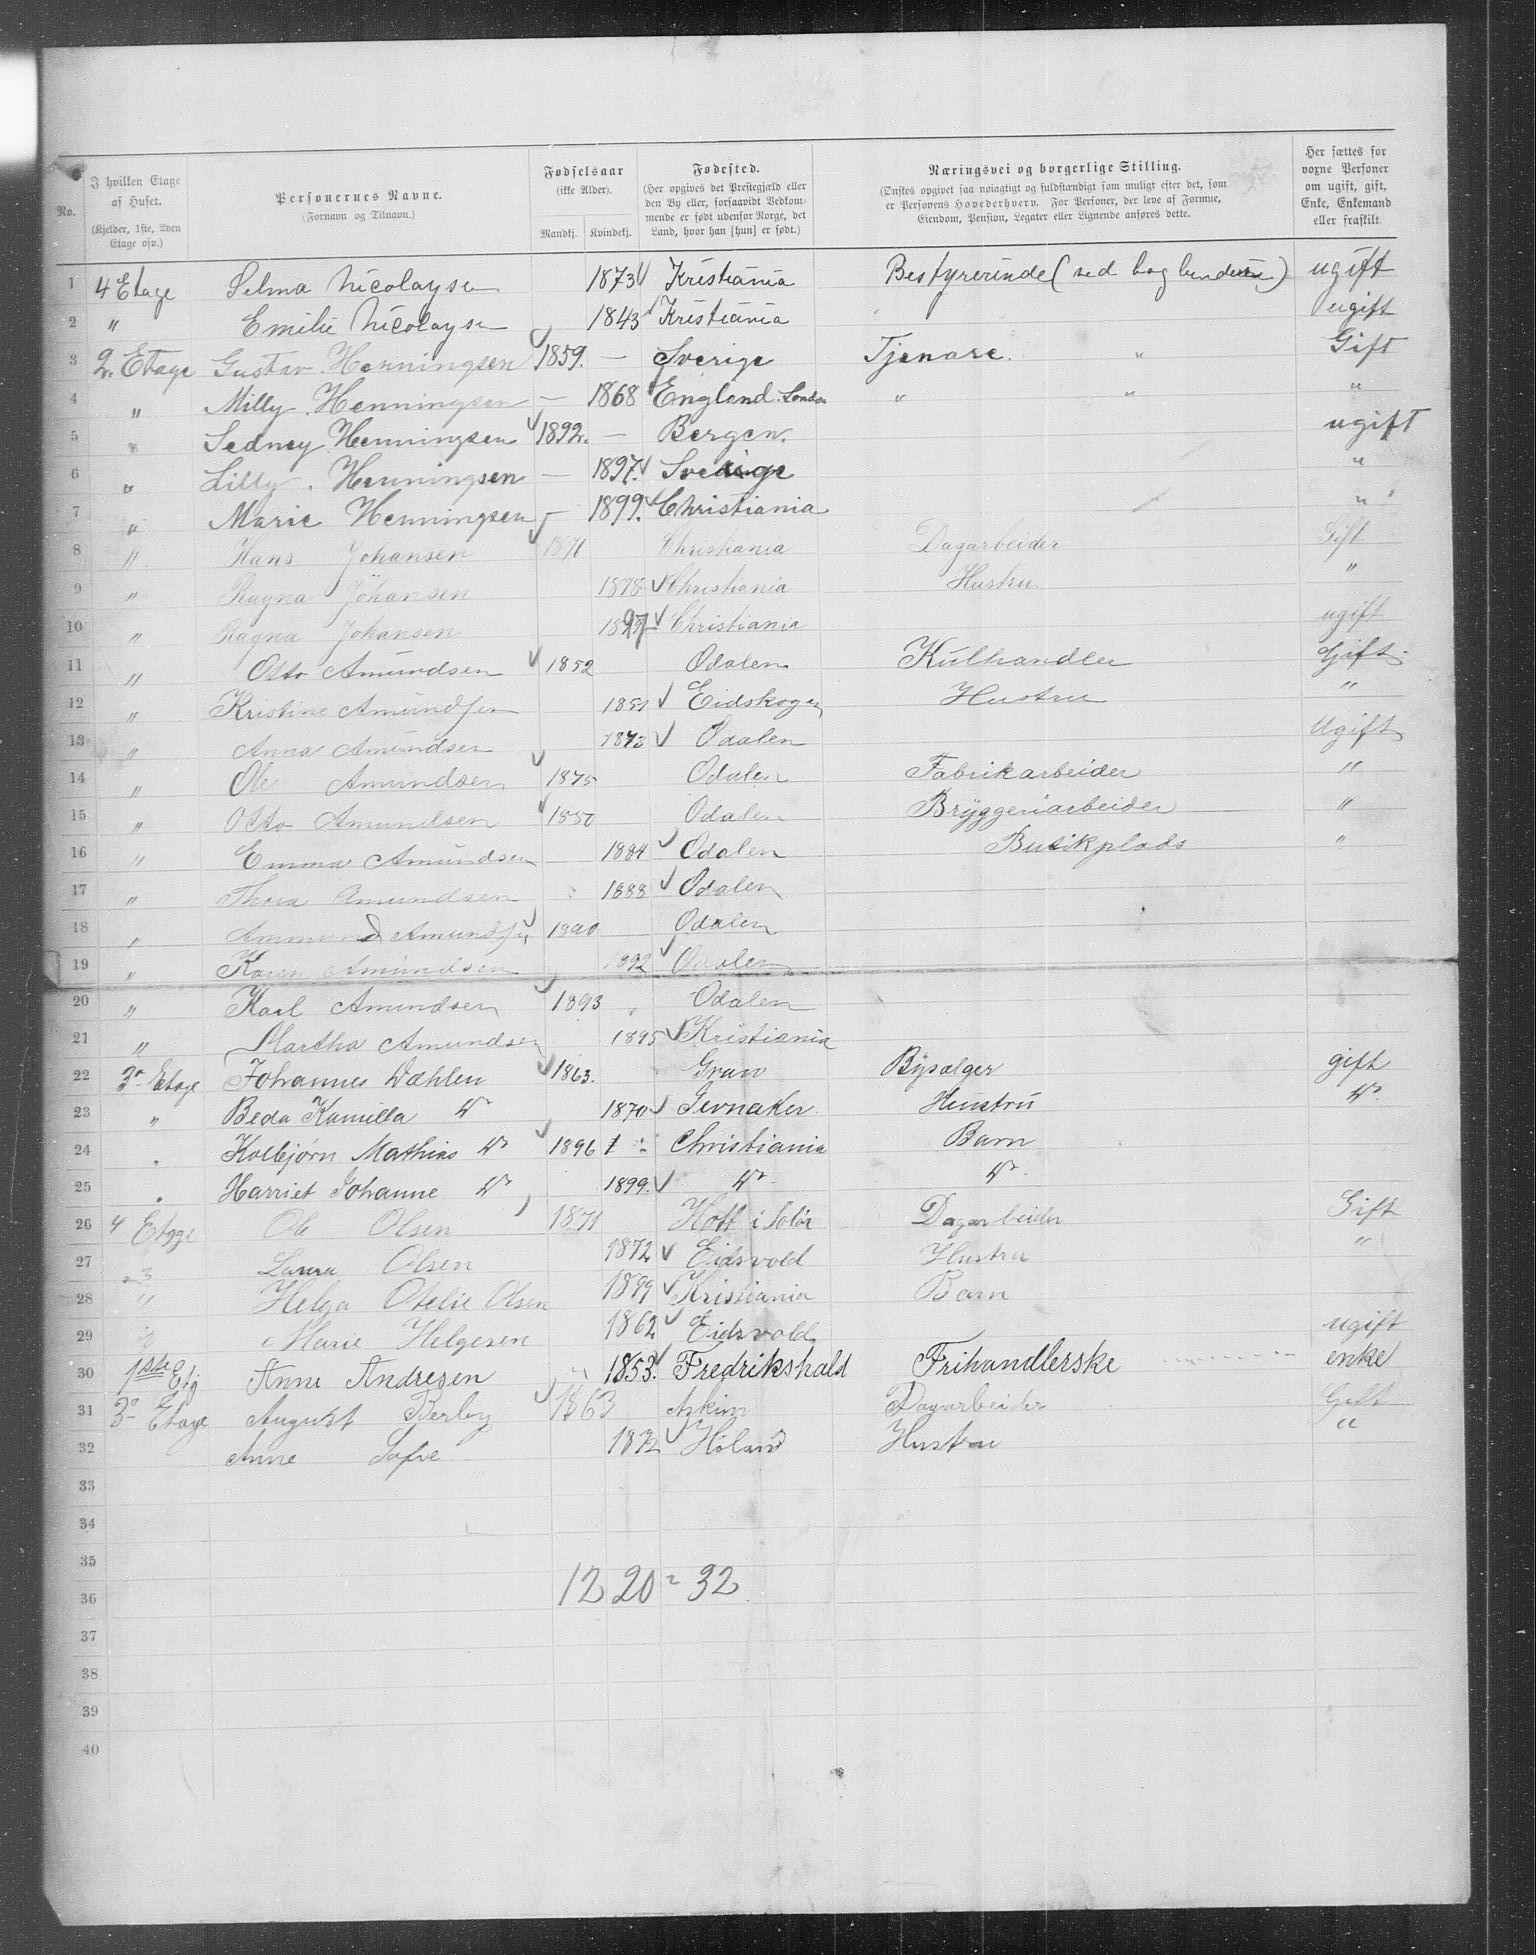 No.
I hvilken Etage af Huset. (Kjelder, 1ste, 2den Etage osv.)
Personernes Navne. (Fornavn og Tilnavn.)
Fødselsaar (ikke Alder). Mandkj. Kvindekj.
Fødested. (Her opgives det Prestegjæld eller den By eller, forsaavidt Vedkommende er født udenfor Norge, det Land, hvor han [hun] er født.)
Næringsvei og borgerlige Stilling. (Ønskes opgivet saa nøiagtigt og fuldstændigt som muligt efter det, som er Personens Hovederhverv. For Personer, der leve af Formue, Eiendom, Pension, Legater eller Lignende anføres dette.
Her sættes for voxne Personer om ugift, gift, Enke, Enkemand eller fraskilt
1 4 Etage Selma Nicolaysen 1873 Kristiania Bestyrerinde (ved bog ) ugift
2 " Emilie Nicolaysen 1843 Kristiania ugift
3 2. Etage Gustav Henningsen 1859. — Sverige Tjenare. " Gift
4 " Milly Henningsen — 1868 England. London " " "
5 " Sedney Henningsen 1892. — Bergen. ugift
6 " Lilly Henningsen — 1897. Sverige "
7 " Marie Henningsen — 1899. Christiania "
8 " Hans Johansen 1871 Christiania Dagarbeider Gift
9 " Ragna Johansen 1878 Christiania Hustru "
10 " Ragna Johansen 1897 Christiania ugift
11 " Otto Amundsen 1852 Odalen Kulhandler Gift
12 " Kristine Amundsen 1851 Eidskogen Hustru "
13 " Anna Amundsen 1873 Odalen Ugift
14 " Ole Amundsen 1875 Odalen Fabrikarbeider "
15 " Otto Amundsen 1880 Odalen Bryggeriarbeider "
16 " Emma Amundsen 1884 Odalen Butikplads "
17 " Thora Amundsen 1888 Odalen
18 " Ammund Amundsen 1890 Odalen
19 " Karen Amundsen 1892 Odalen
20 " Karl Amundsen 1893 " Odalen
21 " Martha Amundsen 1895 Kristiania
22 3' Etage Johannes Dæhlen 1863. Gran Bysælger gift
23 " Beda Kamilla do 1870 Jevnaker Hustru do
24 " Kolbjørn Mathias do 1896 Christiania Barn
25 " Harriet Johanne do 1899. do do
26 4 Etage Ole Olsen 1871 Hoff i Solør Dagarbeider Gift
27 " Laura Olsen 1872 Eidsvold Hustru "
28 " Helga Otelie Olsen 1899 Kristiania Barn
29 " Marie Helgesen 1862 Eidsvold ugift
30 1ste Etg Anne Andresen 1853. Fredrikshald Frihandlerske enke
31 3' Etage August Berby 1863 Askim Dagarbeider Gift
32 Anne Sofie 1872 Høland Hustru "
33
34
35
36 12 20 = 32
37
38
39
40